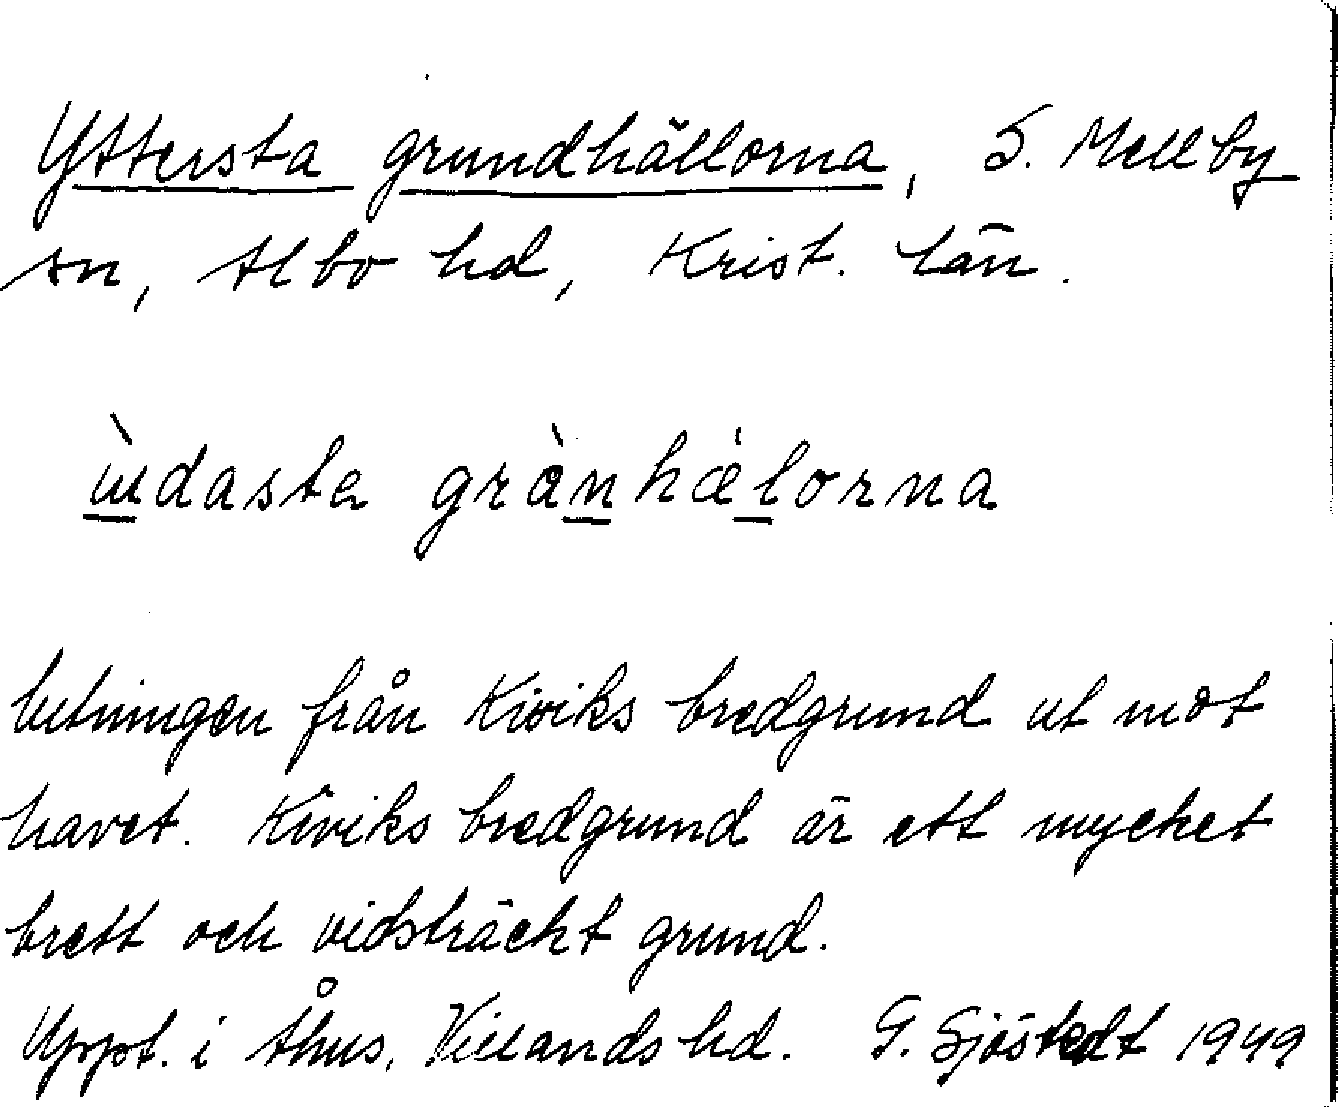 Yttersta grundhällorna, S. Mellby
sn, Albo hd, Krist. län.
grànhælorna
lutningen från Kiviks bredgrund ut mot
havet. Kiviks bredgrund är ett mycket
brett och vidsträckt grund.
Uppt. i Åhus, Villands hd. G. Sjöstedt 1949